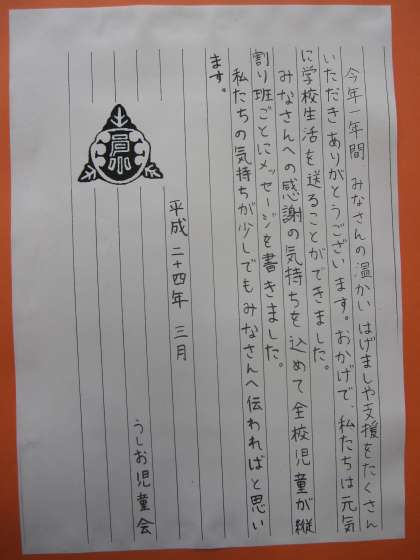 今年一年間 みなさんの温かい はげましや支援をたくさん
いただき ありがとうございます。おかげで、私たちは元気
に学校生活を送ることができました。
みなさんへの感謝の気持ちを込めて全校児童が縦
割り班ごとにメッセージを書きました。
私たちの気持ちが少しでもみなさんへ伝わればと思い
ます。
平成 二十四年 三月
うしお児童会